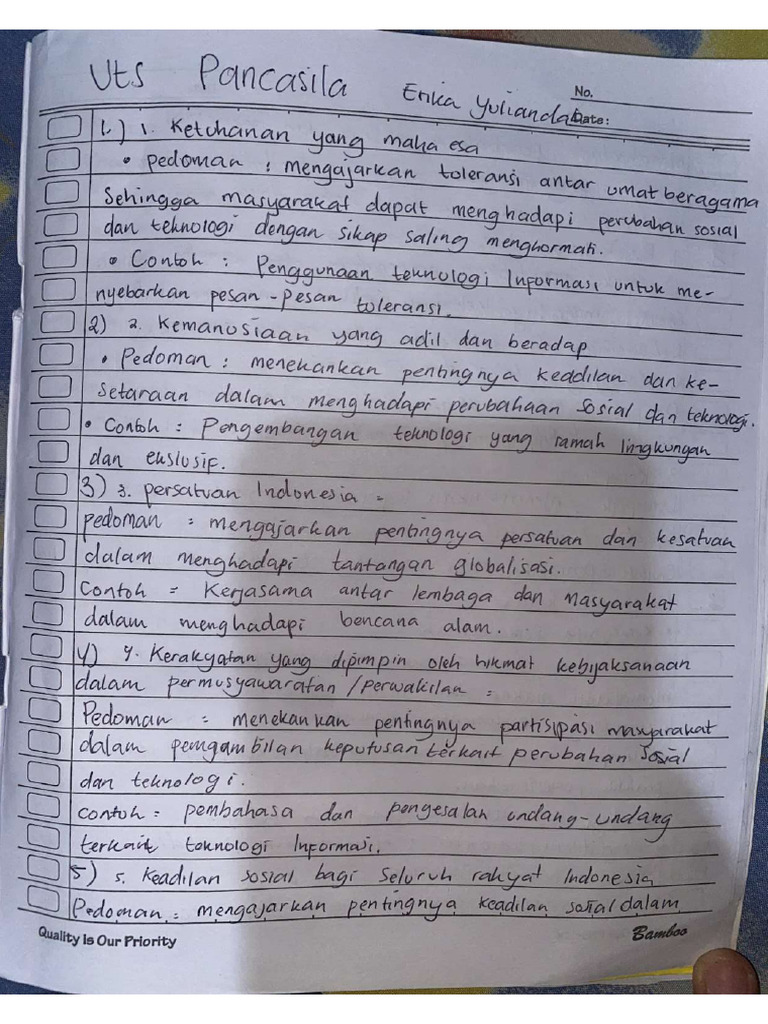 Uts Pancasila Erika Yulianda
No.
Date:
1.) 1. Ketuhanan yang maha esa
• pedoman : mengajarkan toleransi antar umat beragama
Sehingga masyarakat dapat menghadapi perubahan sosial
dan teknologi dengan sikap saling menghormati.
• Contoh : Penggunaan teknologi Informasi untuk me-
nyebarkan pesan-pesan toleransi.
2) 2. Kemanusiaan yang adil dan beradap
• Pedoman : menekankan pentingnya keadilan dan ke-
setaraan dalam menghadapi perubahaan sosial dan teknologi.
• Contoh : Pengembangan teknologi yang ramah lingkungan
dan ekslusif.
3) 3. persatuan Indonesia =
pedoman : mengajarkan pentingnya persatuan dan kesatuan
dalam menghadapi tantangan globalisasi.
Contoh = Kerjasama antar lembaga dan Masyarakat
dalam menghadapi bencana alam.
4) 4. Kerakyatan yang dipimpin oleh hikmat kebijaksanaan
dalam permusyawaratan /perwakilan =
Pedoman = menekankan pentingnya partisipasi masyarakat
dalam pemgambilan keputusan terkait perubahan sosial
dan teknologi.
contoh = pembahasa dan pengesalan undang-undang
terkait teknologi Informasi.
5) 5. keadilan sosial bagi seluruh rakyat Indonesia
Pedoman = mengajarkan pentingnya keadilan sosial dalam
Quality Is Our Priority
Bamboo